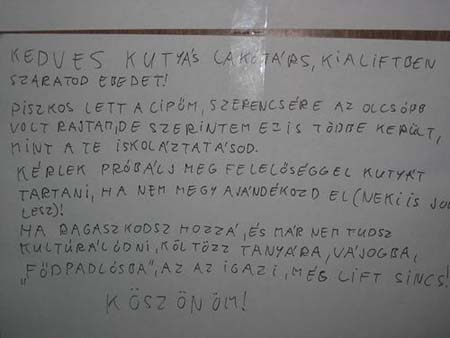 KEDVES KUTYÁS LAKÓTÁRS, KI A LIFTBEN
SZARATOD EBEDET!
PISZKOS LETT A CIPŐM, SZERENCSÉRE AZ OLCSÓBB
VOLT RAJTAM, DE SZERINTEM EZ IS TÖBBE KERÜLT,
MINT A TE ISKOLÁZTATÁSOD.
KÉRLEK PRÓBÁLJ MEG FELELŐSÉGGEL KUTYÁT
TARTANI, HA NEM MEGY AJÁNDÉKOZD EL (NEKI IS JOBB
LESZ)!
HA RAGASZKODSZ HOZZÁ, ÉS MÁR NEM TUDSZ
KULTÚRÁLÓDNI, KÖLTÖZZ TANYÁRA, VÁJOGBA,
„FŐDPADLÓSBA", AZ AZ IGAZI, MÉG LIFT SINCS!
KÖSZÖNÖM!